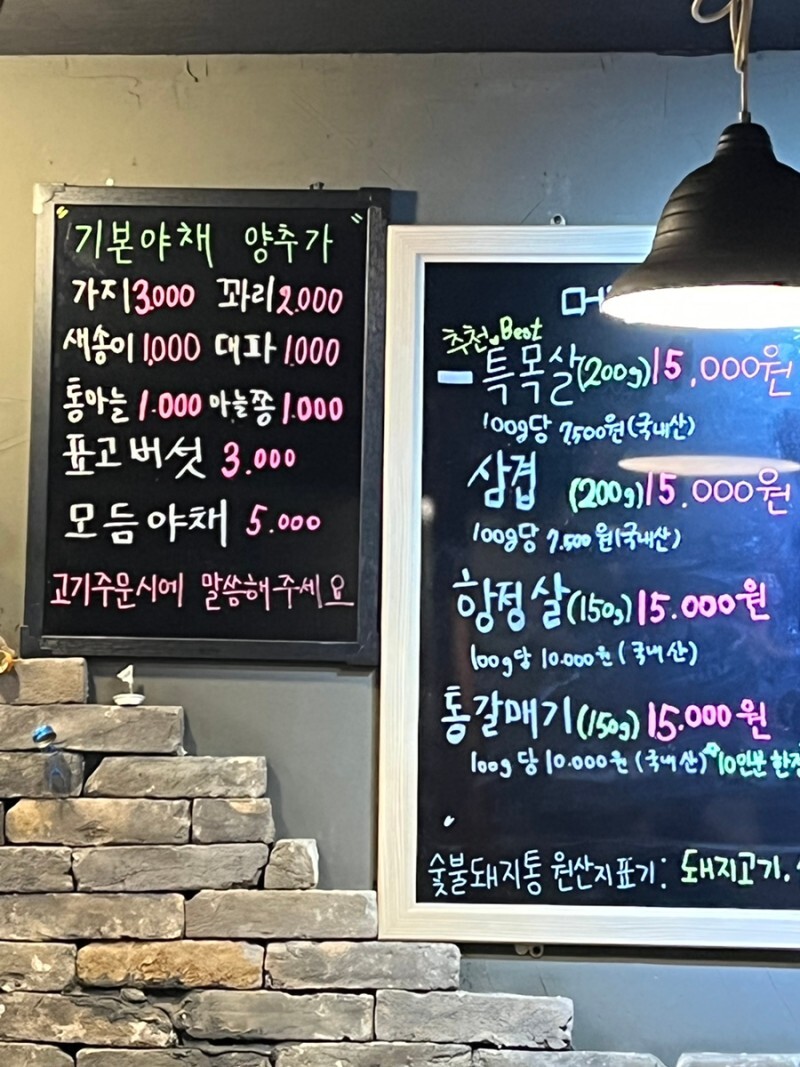 기본야채 양추가
가지 3.000 꽈리 2.000
새송이 1,000 대파 1.000
통마늘 1.000 마늘쫑 1.000
표고버섯 3.000
모듬야채 5.000
고기주문시에 말씀해주세요
추천 Best
특목살 (200g) 15,000원
100g당 7,500원 (국내산)
삼겹 (200g) 15.000원
100g당 7.500원 (국내산)
항정살 (150g) 15.000원
100g당 10.000원 (국내산)
통갈매기 (150g) 15.000원
100g당 10.000원 (국내산) 10인분
숯불돼지통 원산지표기: 돼지고기.